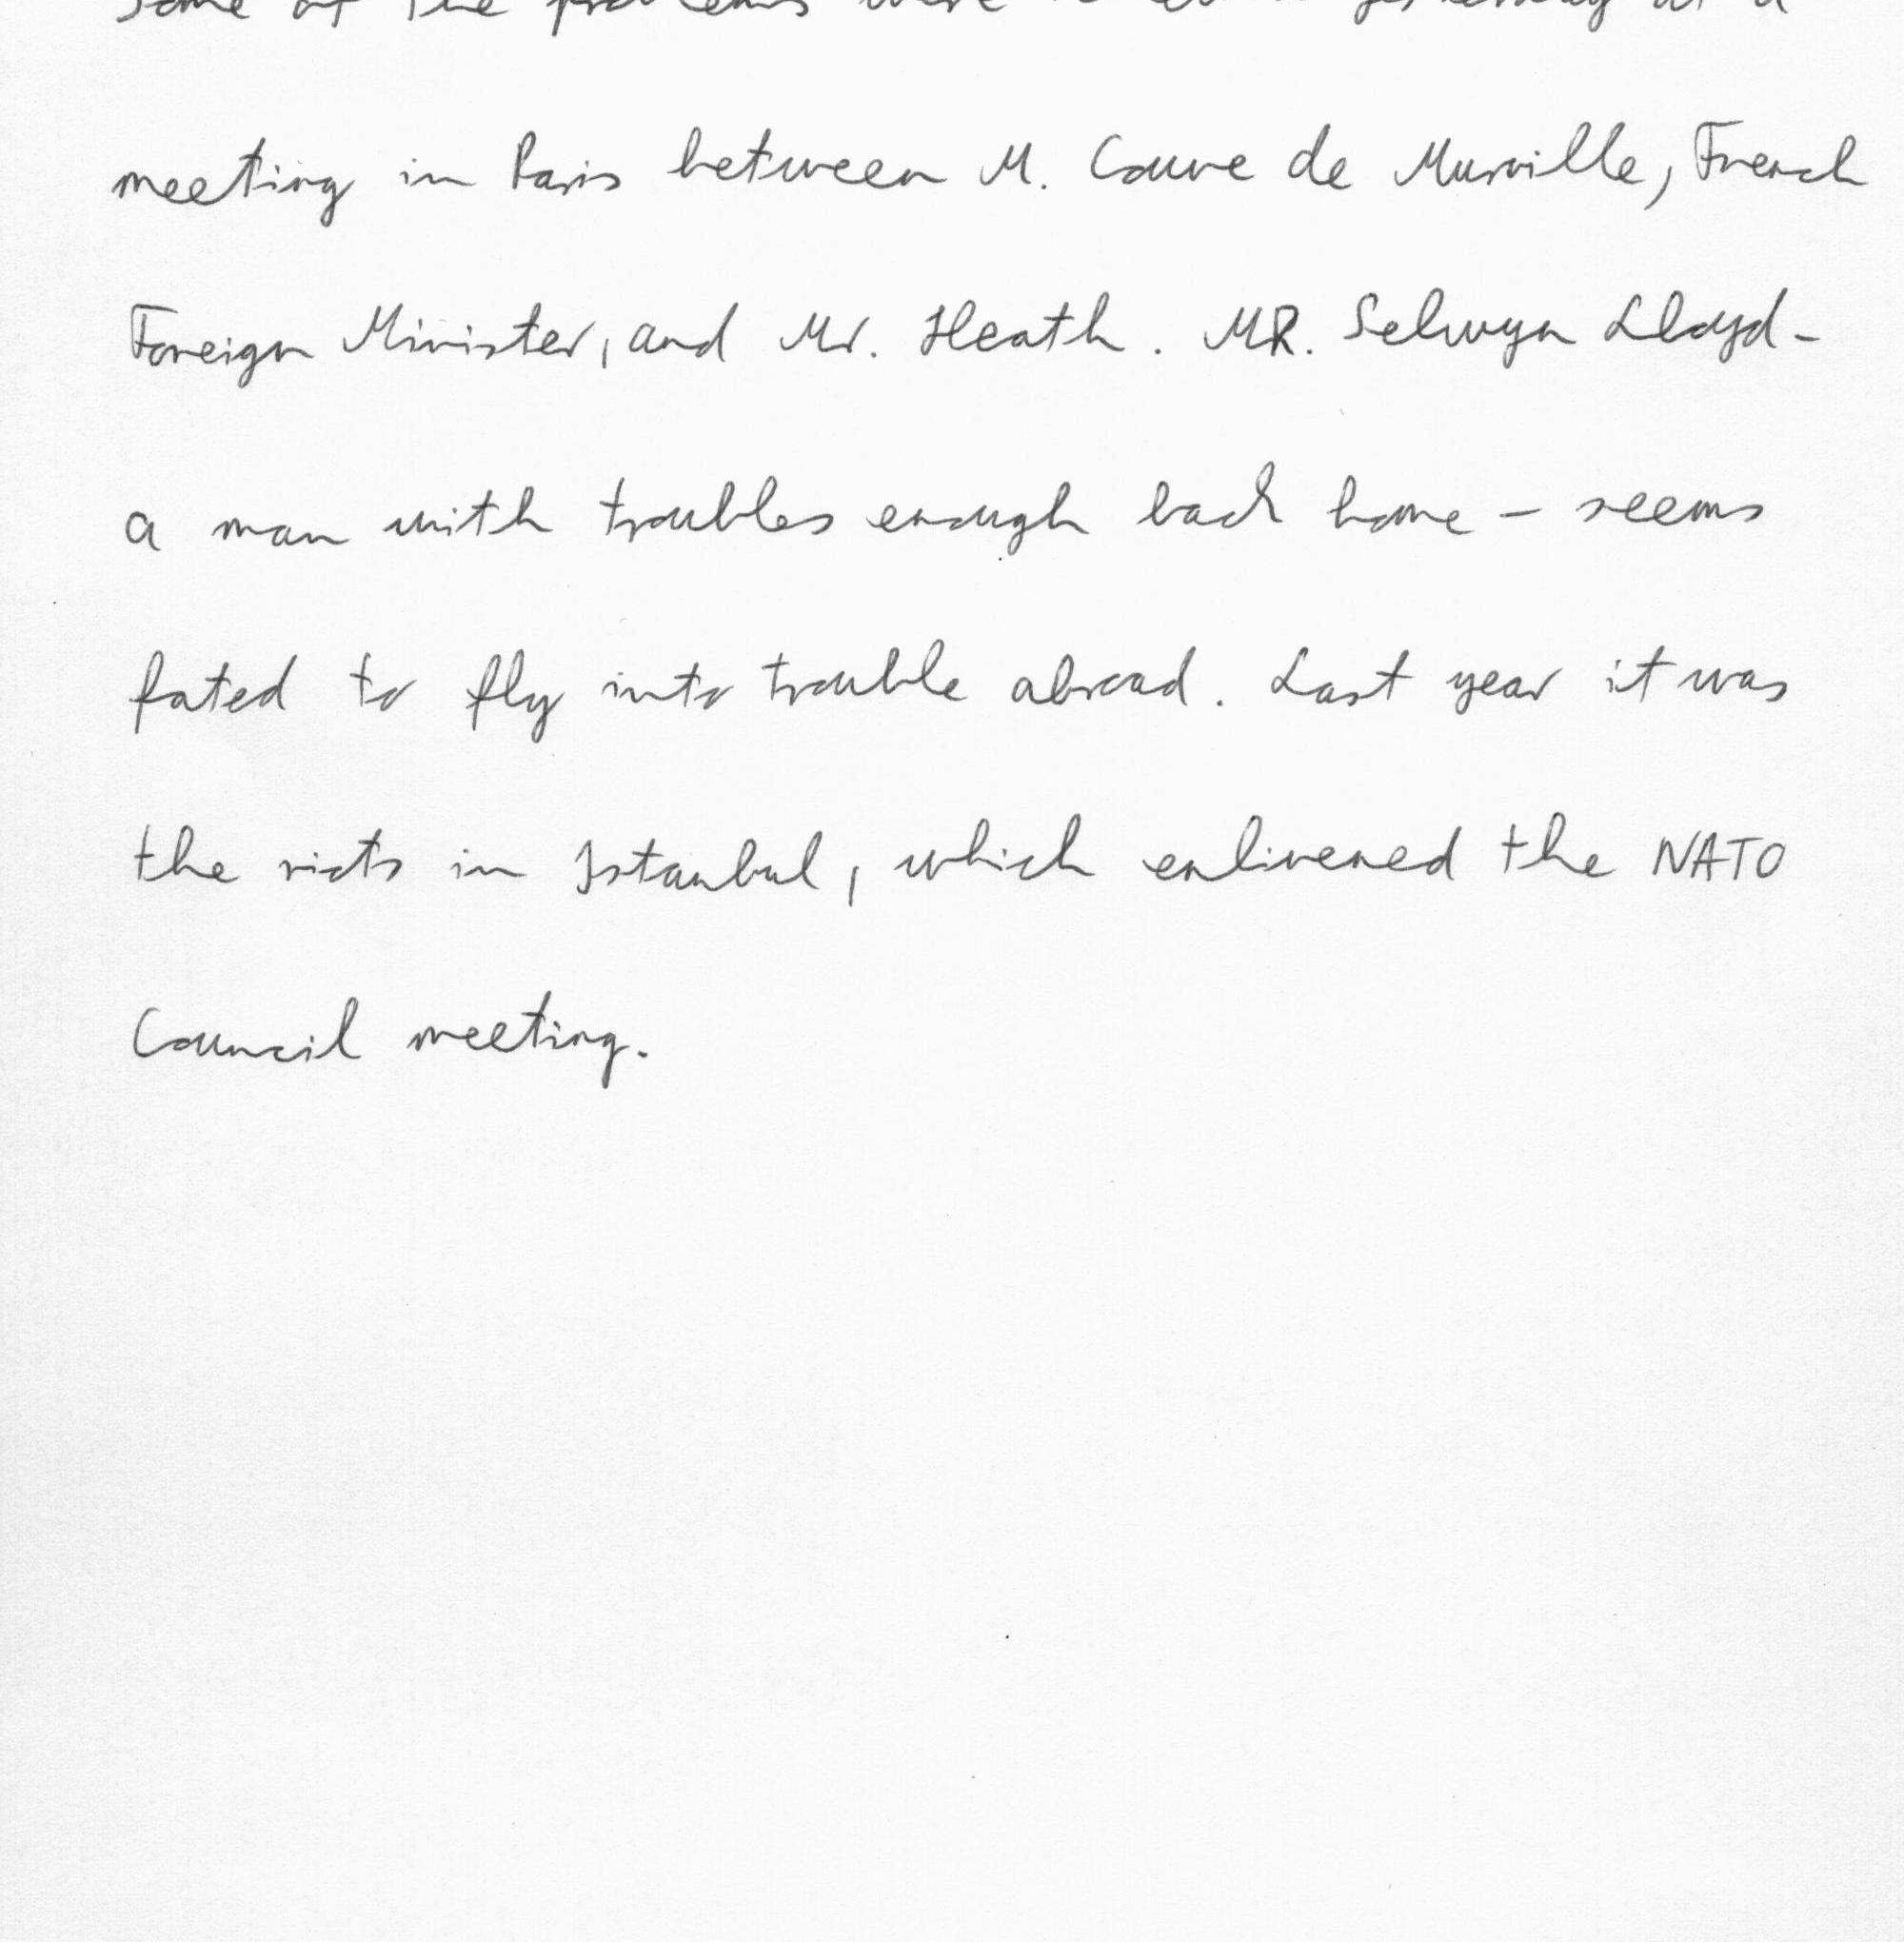 Some of the problems were yesterday at a
meeting in Paris between M. Couve de Murville, French
Foreign Minister, and Mr. Heath. MR. Selwyn Lloyd-
a man with troubles enough back home - seems
fated to fly into trouble abroad. Last year it was
the riots in Istanbul, which enlivened the NATO
Council meeting.